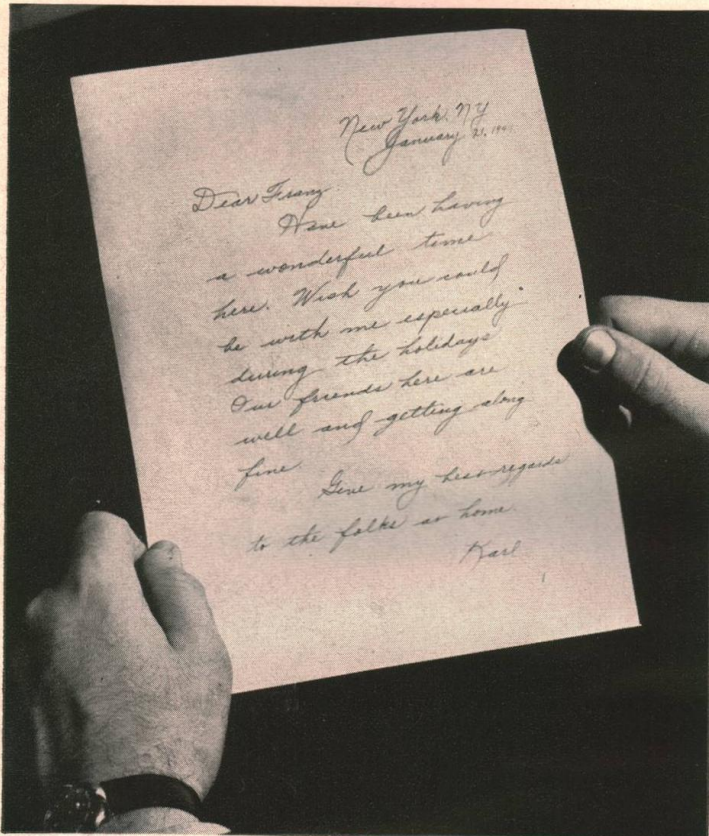 New York, NY
January 21, 
Dear Franz
Have been having
a wonderful time
here. Wish you could
be with me especially
during the holidays
Our friends here are
well and getting along
fine.
Give my best regards
to the folks at home.
Karl